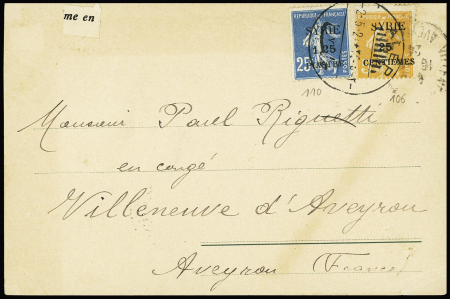 me en
REPUBLIQUE FRANÇAISE
SYRIE
1,25
PIASTRE
25
SYRIE
25
CENTIEMES
110
106
Monsieur Paul Riguette
en congé
Villeneuve d'Aveyron
Aveyron (France)